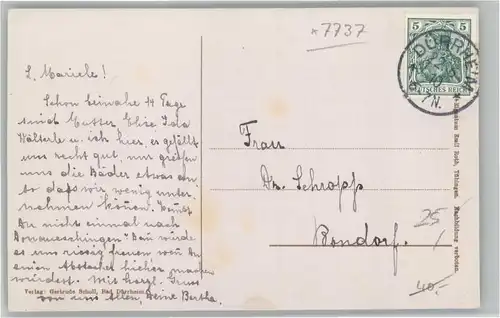 *7737
5 5
DÜRRHEIM
DEUTSCHES REICH
7N.
L. Mariele!
Schon beinahe 14 Tage
sind Mutter Elise Ida
Wälterle u. ich hier, es gefällt
uns recht gut, nur greifen
uns die Bäder etwas an,
so daß wir wenig unter-
nehmen können. Kommst
Du nicht einmal nach
Donaueschingen? Dann würde
es uns riesig freuen wenn Du
einen Abstecher hierher machen
würdest. Mit herzl. Gruss
von uns Allen, Deine Bertha.
Frau
Dr. Schropp
Bondorf.
25
40.-
Verlag: Gertrude Scholl, Bad Dürrheim.
Emil Roth, Tübingen. Nachbildung verboten.